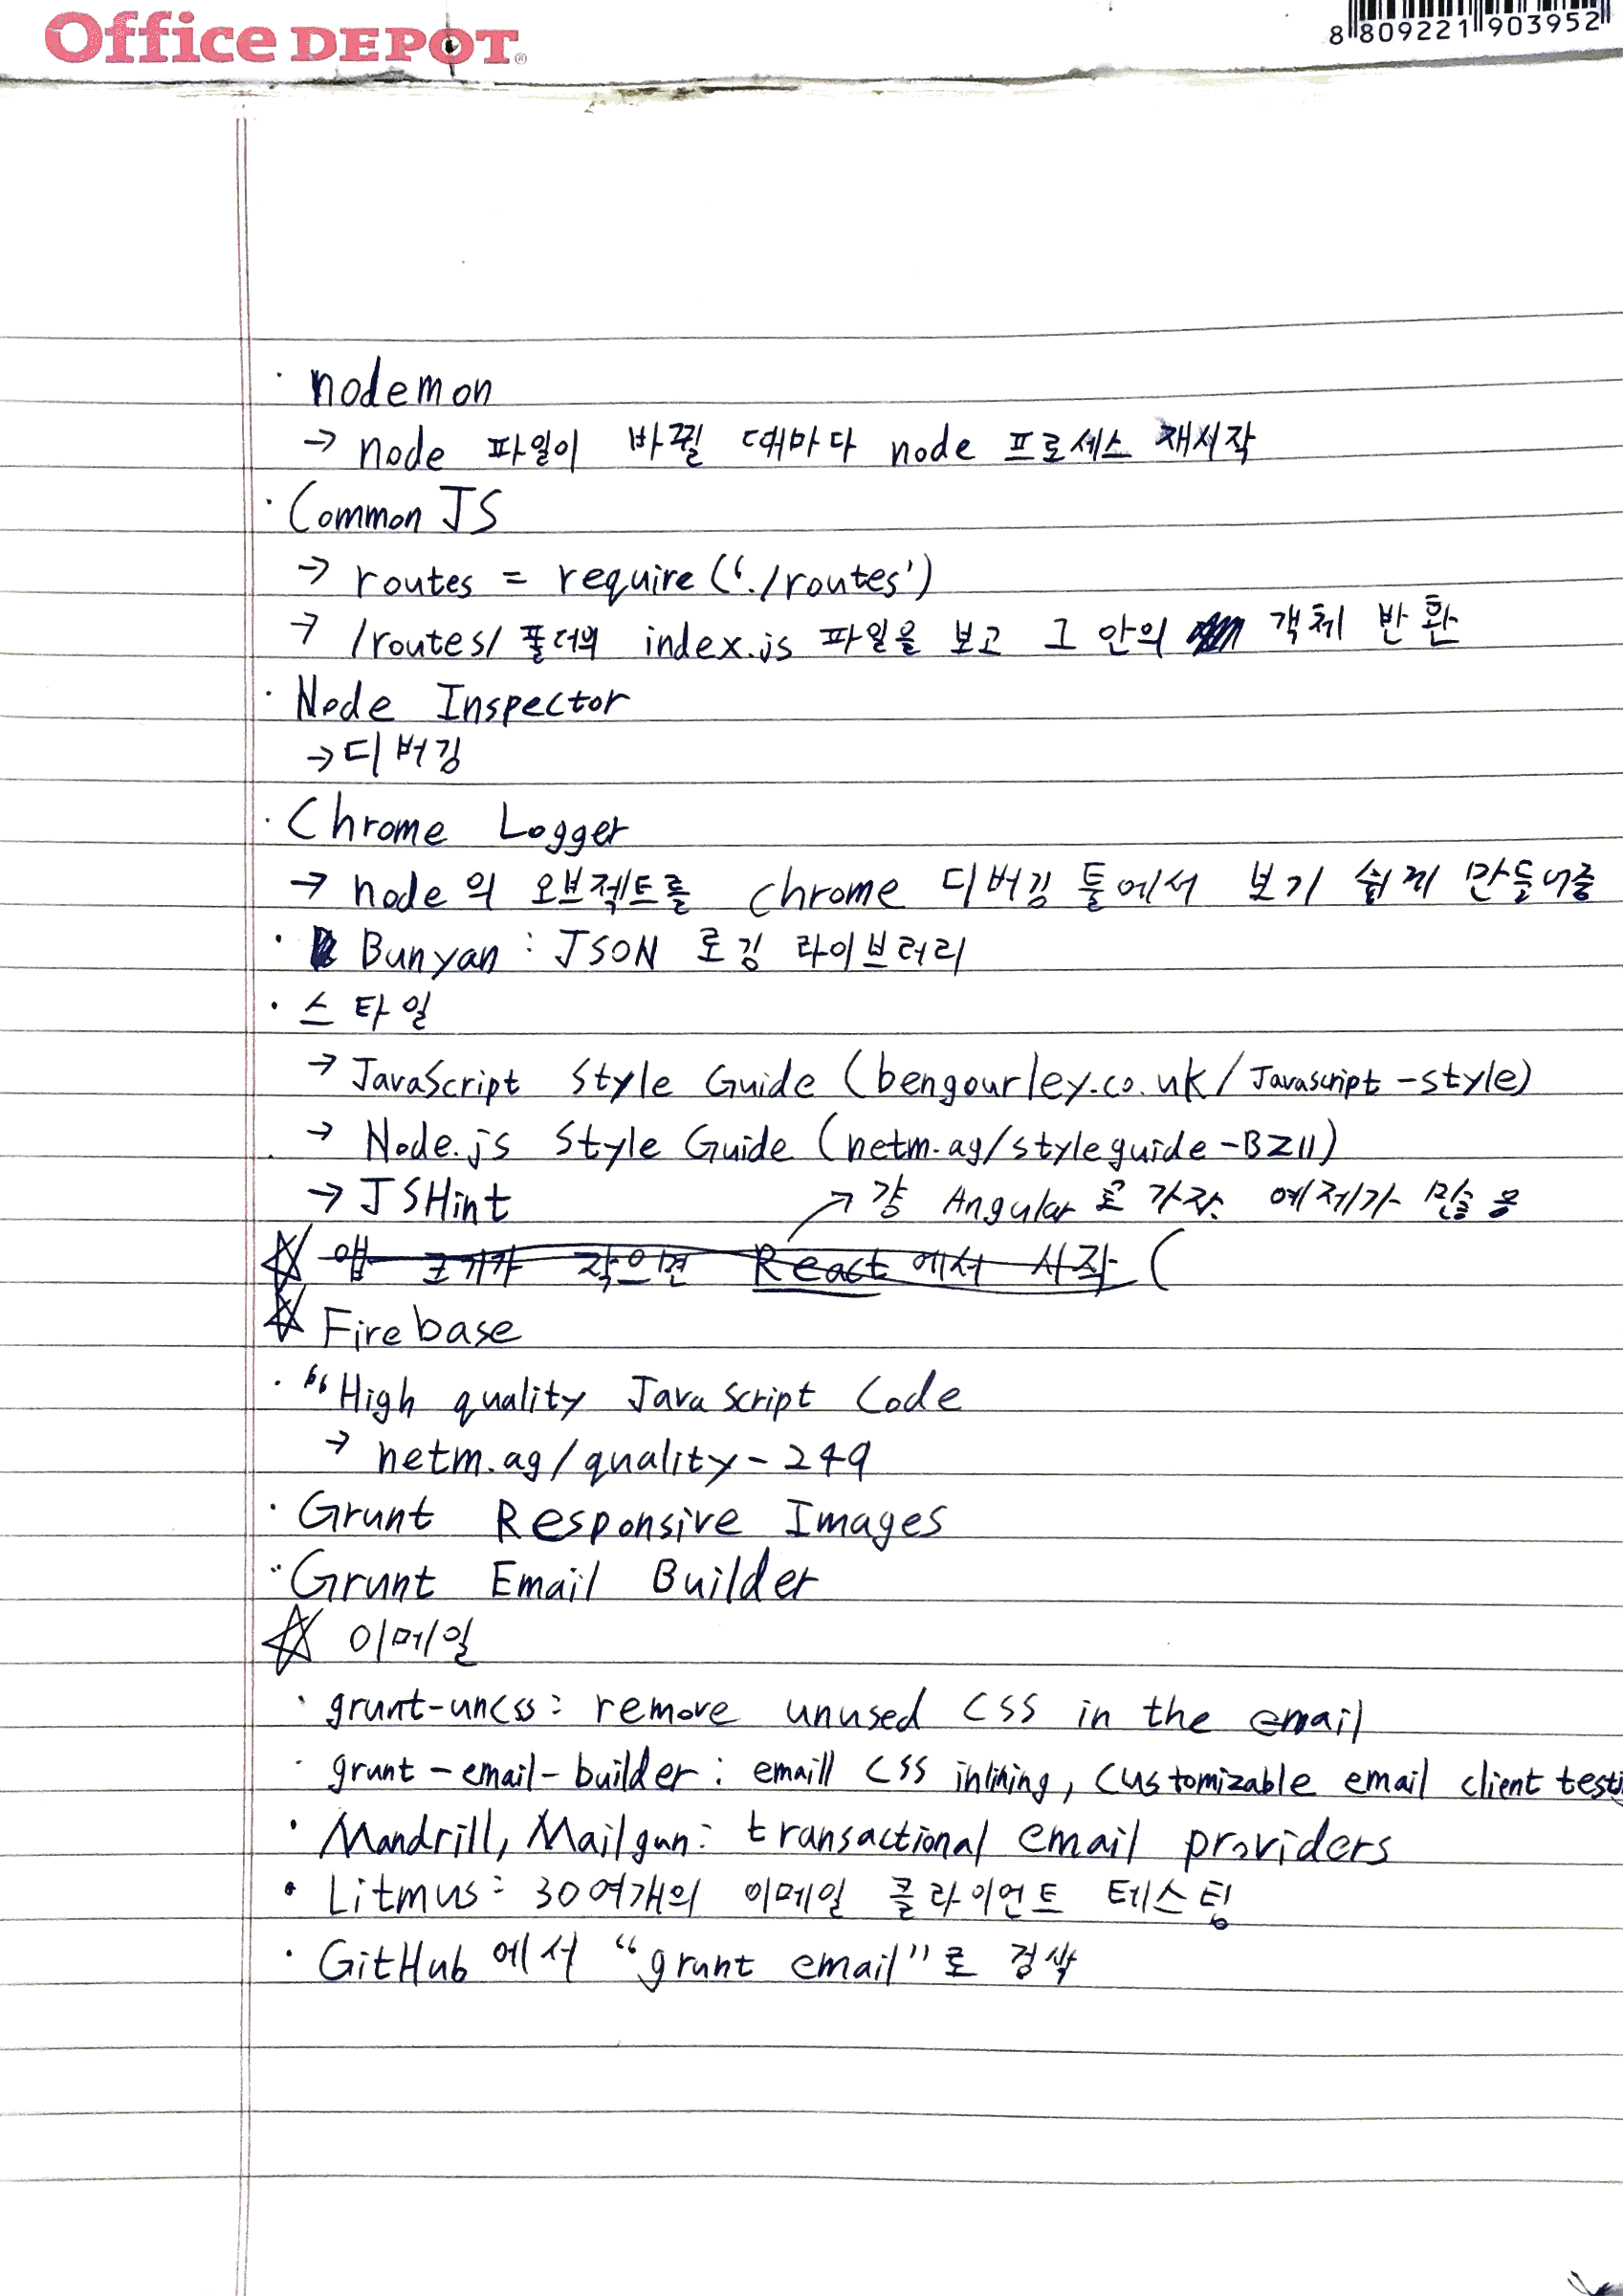 Office DEPOT®
8 809221 903952
· nodemon
→ node 파일이 바뀔 때마다 node 프로세스 재시작
· Common JS
→ routes = require('./routes')
→ /routes/ 폴더의 index.js 파일을 보고 그 안의 객체 반환
· Node Inspector
→ 디버깅
· Chrome Logger
→ node의 오브젝트를 chrome 디버깅 툴에서 보기 쉽게 만들어줌
· Bunyan : JSON 로깅 라이브러리
· 스타일
→ JavaScript Style Guide (bengourley.co.uk/Javascript-style)
→ Node.js Style Guide (netm.ag/styleguide-BZ11)
→ JSHint
→ 걍 Angular로 가자. 예제가 많을 듯
☆ 앱 크기가 작으면 React에서 시작 (
☆ Firebase
· "High quality JavaScript Code
→ netm.ag/quality-249
· Grunt Responsive Images
· Grunt Email Builder
☆ 이메일
· grunt-uncss: remove unused CSS in the email
· grunt-email-builder: emaill CSS inlining, customizable email client testi
· Mandrill, Mailgun: transactional email providers
· Litmus: 30여개의 이메일 클라이언트 테스팅
· GitHub에서 "grunt email"로 검색